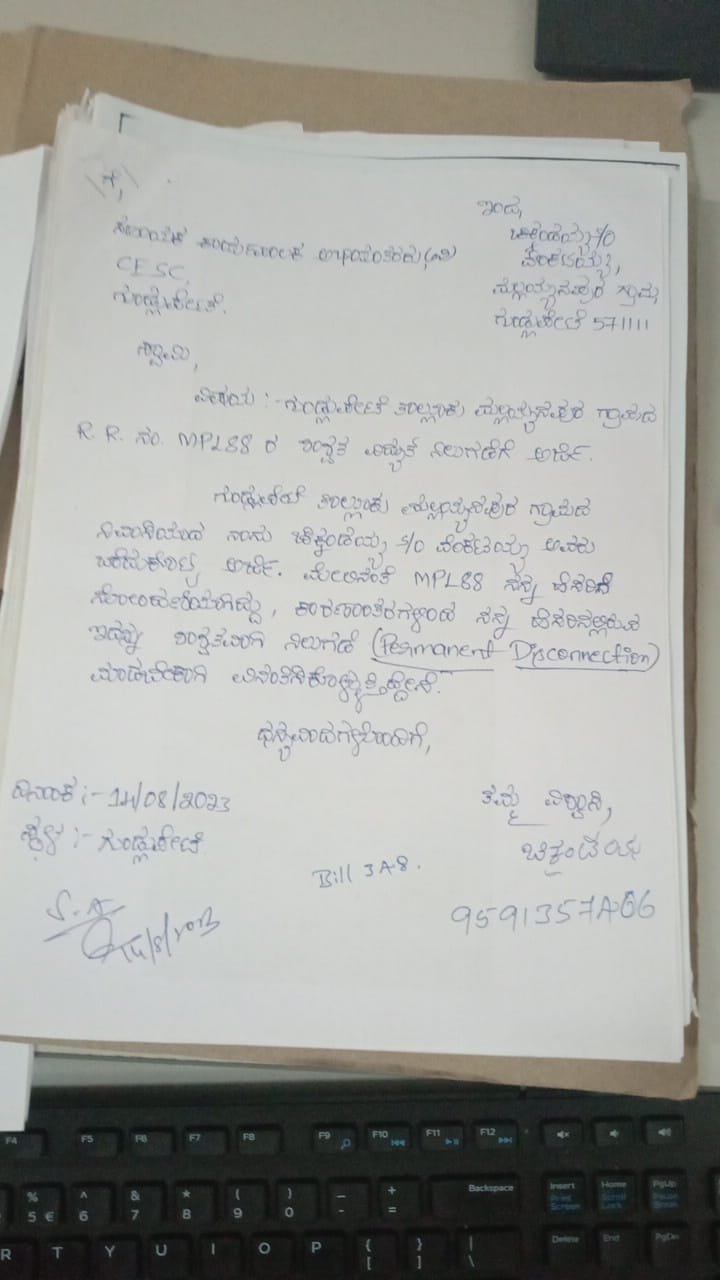 ಗೆ,
ಇಂದ,
ಚಿಕ್ಕಂಡಯ್ಯ S/O
ವೆಂಕಟಯ್ಯ,
ಮಲ್ಲಯ್ಯನಪುರ ಗ್ರಾಮ
ಗುಂಡ್ಲುಪೇಟೆ 571111
ಸಹಾಯಕ ಕಾರ್ಯಪಾಲಕ ಅಭಿಯಂತರರು, (ವಿ)
CESC,
ಗುಂಡ್ಲುಪೇಟೆ.
ಸ್ವಾಮಿ,
ವಿಷಯ :- ಗುಂಡ್ಲುಪೇಟೆ ತಾಲ್ಲೂಕು ಮಲ್ಲಯ್ಯನಪುರ ಗ್ರಾಮದ
R. R. ಸಂ. MPL88 ರ ಶಾಶ್ವತ ವಿದ್ಯುತ್ ನಿಲುಗಡೆಗೆ ಅರ್ಜಿ.
ಗುಂಡ್ಲುಪೇಟೆ ತಾಲ್ಲೂಕು ಮಲ್ಲಯ್ಯನಪುರ ಗ್ರಾಮದ
ನಿವಾಸಿಯಾದ ನಾನು ಚಿಕ್ಕಂಡಯ್ಯ S/O ವೆಂಕಟಯ್ಯ ಅವರು
ಬರೆದುಕೊಟ್ಟ ಅರ್ಜಿ. ಮೇಲಿನಂತೆ MPL88 ನನ್ನ ಹೆಸರಿಗೆ
ನೋಂದಣಿಯಾಗಿದ್ದು, ಕಾರಣಾಂತರಗಳಿಂದ ನನ್ನ ಹೆಸರಿನಲ್ಲಿರುವ
ಇದನ್ನು ಶಾಶ್ವತವಾಗಿ ನಿಲುಗಡೆ (Permanent Disconnection)
ಮಾಡಬೇಕಾಗಿ ವಿನಂತಿಸಿಕೊಳ್ಳುತ್ತಿದ್ದೇನೆ.
ಧನ್ಯವಾದಗಳೊಂದಿಗೆ,
ದಿನಾಂಕ :- 14/08/2023
ಸ್ಥಳ :- ಗುಂಡ್ಲುಪೇಟೆ
ತಮ್ಮ ವಿಶ್ವಾಸಿ,
ಚಿಕ್ಕಂಡಯ್ಯ
Bill 3A8.
9591357A06
S.A
14/8/2023
F4 F5 F6 F7 F8 F9 F10 F11 F12
% 5 € ^ 6 & 7 * 8 ( 9 ) 0 _ - + = Backspace Insert Print Screen Home Scroll Lock PgUp Pause Break
R T Y U I O P { [ } ] | \ Delete End PgDn